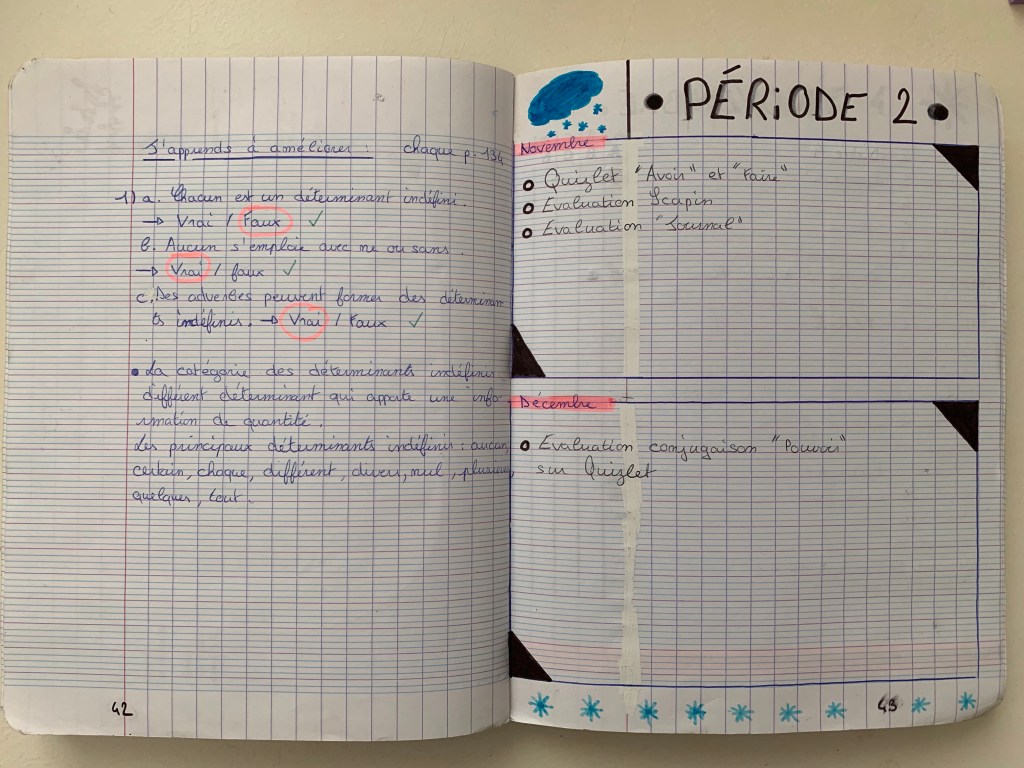 J'apprends à améliorer : chaque p. 134
1) a. Chacun est un déterminant indéfini.
→ Vrai / Faux ✓
b. Aucun s'emploie avec ne ou sans.
→ Vrai / faux ✓
c. Des adverbes peuvent former des déterminan
ts indéfinis. → Vrai / Faux ✓
• La catégorie des déterminants indéfinis
différent déterminant qui apporte une info
rmation de quantité.
Les principaux déterminants indéfinis : aucun,
certain, chaque, différent, divers, nul, plusieurs,
quelques, tout.
42
• PÉRiODE 2 •
Novembre
Quizlet "Avoir" et "Faire"
Evaluation Scapin
Evaluation "Journal"
Décembre
Evaluation conjugaison "Pouvoir"
sur Quizlet
43